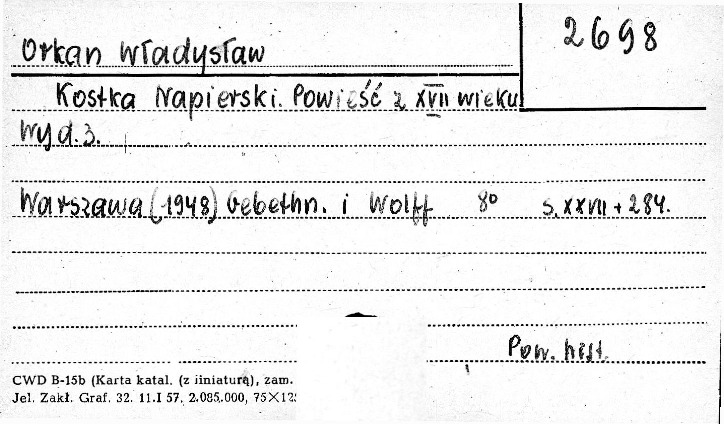 2698
Orkan Władysław
Kostka Napierski. Powieść z XVII wieku
Wyd. 3.
Warszawa (1948) Gebethn. i Wolff 8° s. XXVII + 284.
Pow. hist.
CWD B-15b (Karta katal. (z liniaturą), zam.
Jel. Zakł. Graf. 32. 11.I 57. 2.085.000, 75×125